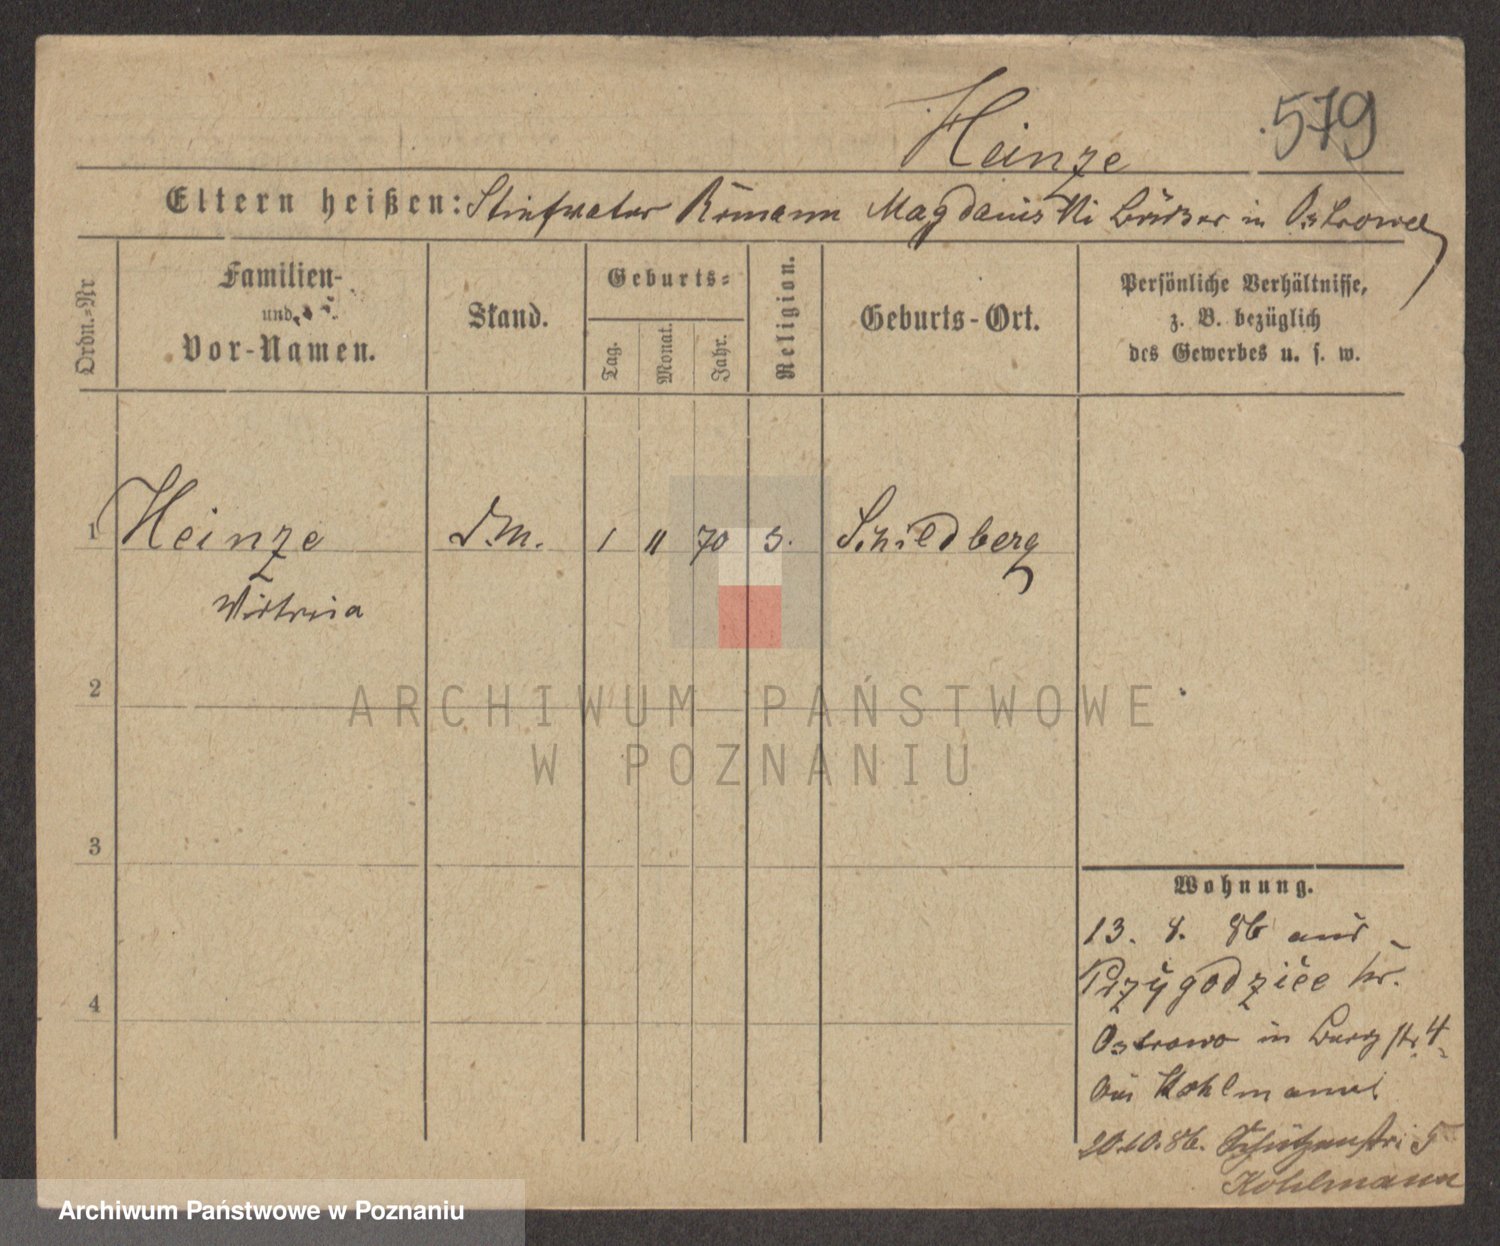 Heinze
579
Eltern heißen: Stiefvater Romann Magdaniski in Ostrowo
Ordn.-Nr
Familien-
und
Vor-Namen.
Stand.
Geburts-
Tag.
Monat.
Jahr.
Religion.
Geburts-Ort.
Persönliche Verhältnisse,
z. B. bezüglich
des Gewerbes u. s. w.
1 Heinze D.M. 1 11 70 Schildberg
2
ARCHIWUM PAŃSTWOWE
W POZNANIU
3
4
Wohnung.
13. 8. 86 aus
Przygodzice Kr.
Ostrowo in Bergstr. 4
bei Kohlmann
20.10.86. Schützenstr. 5
Kohlmann
Archiwum Państwowe w Poznaniu